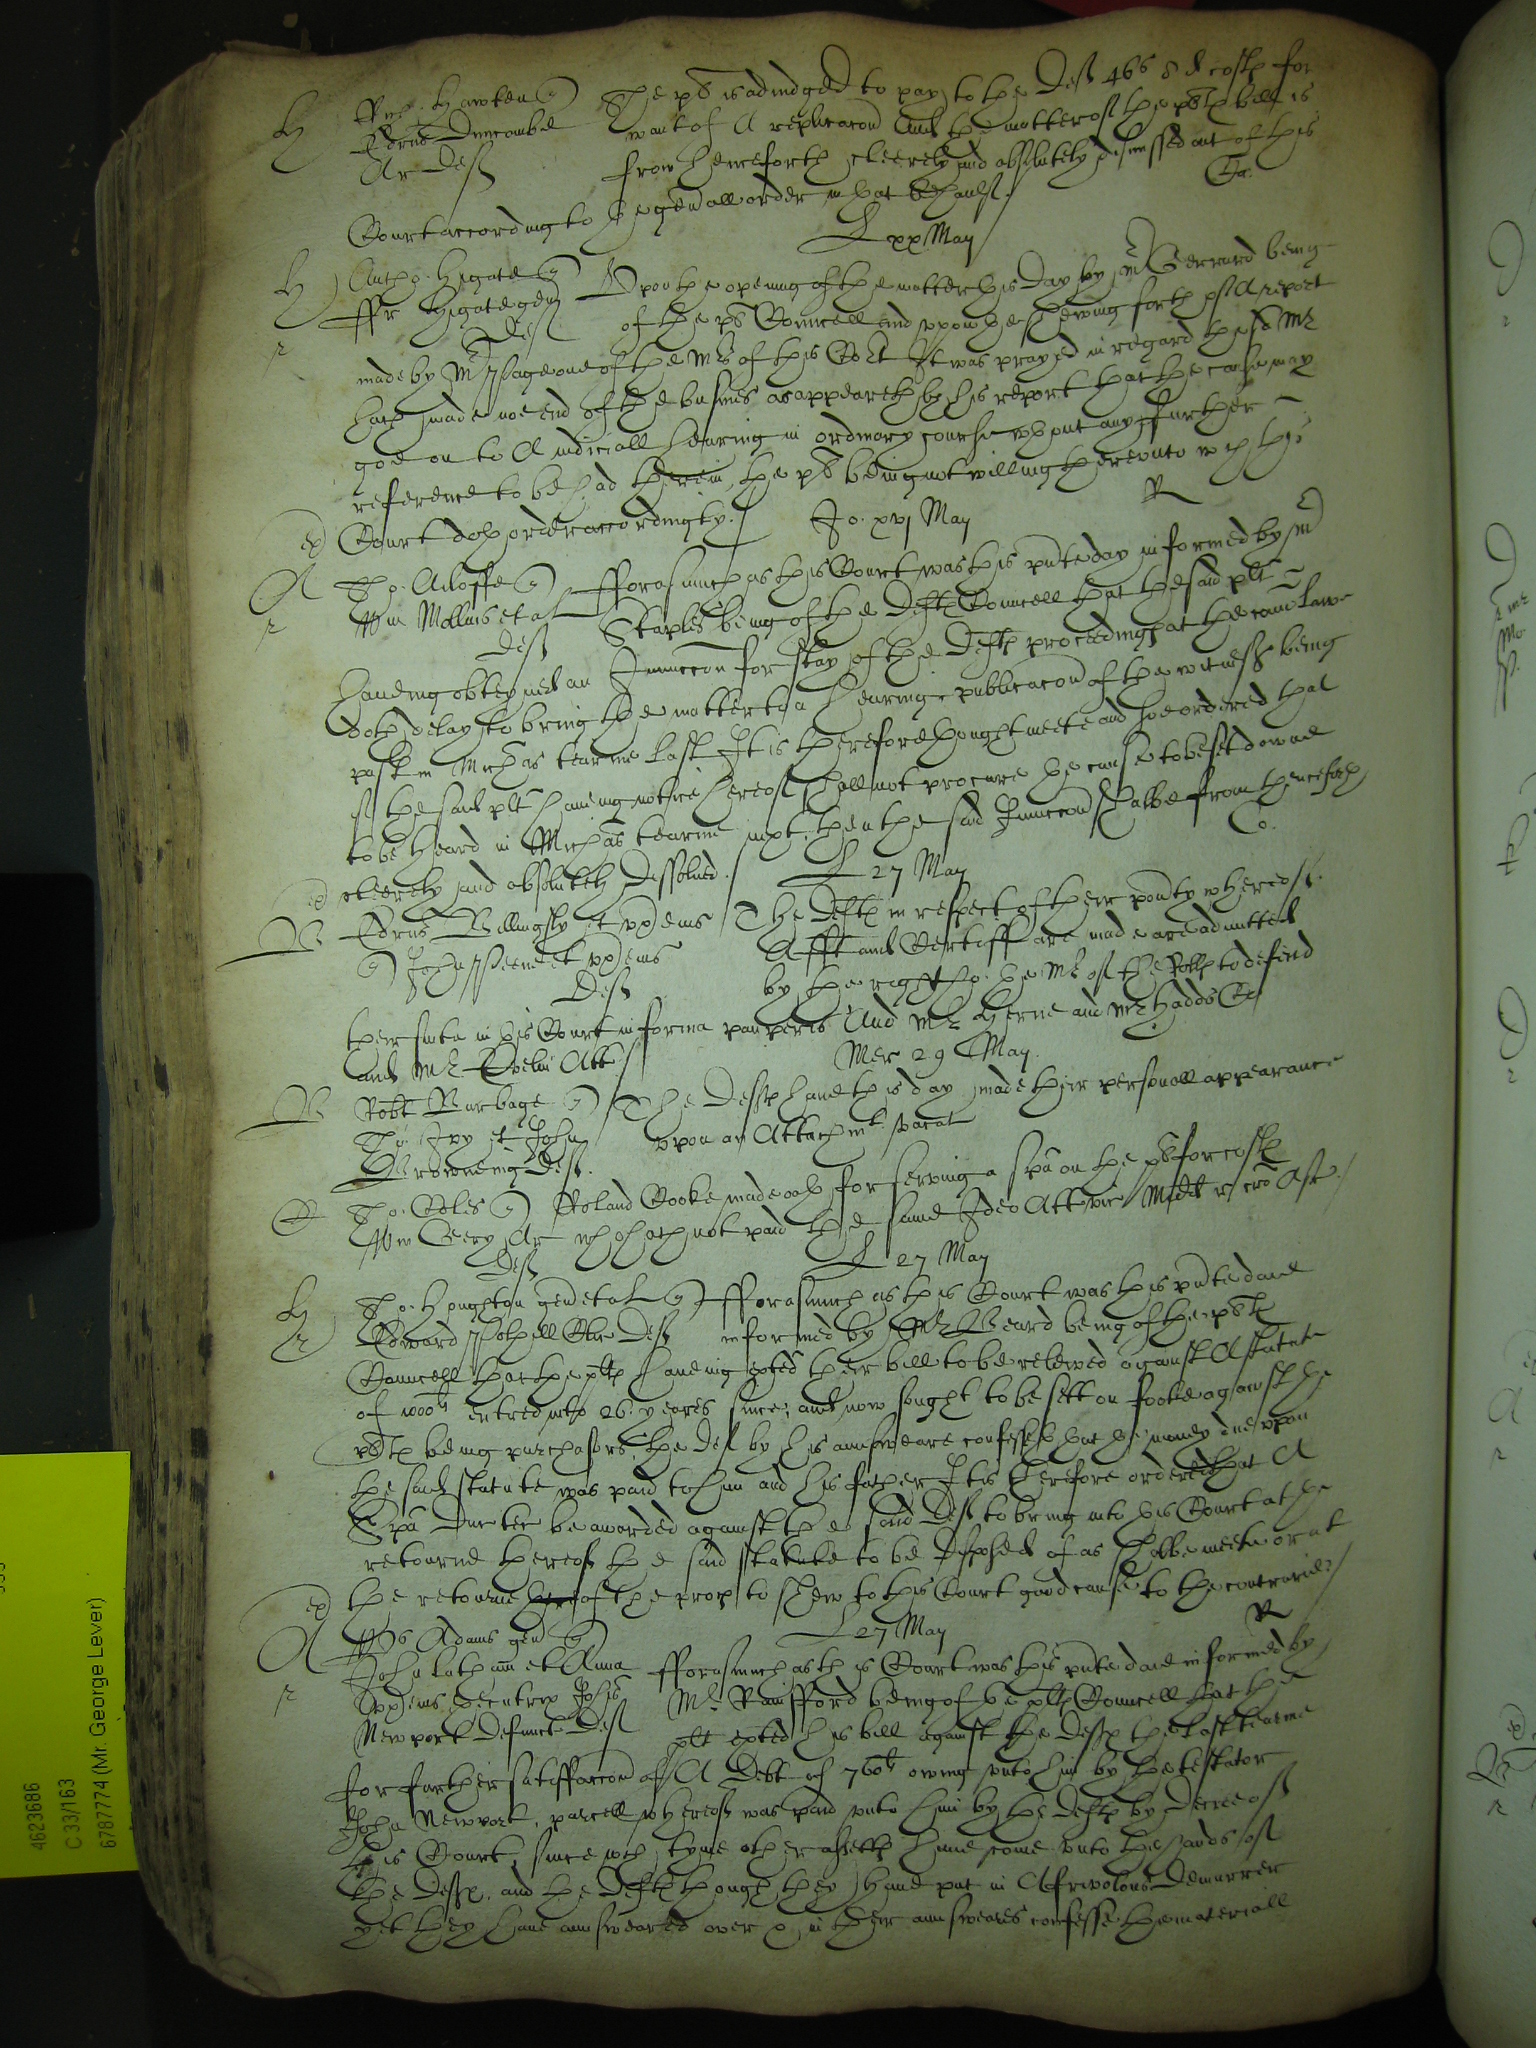 H Ric: Hawten q
Edrus Duncombe
Ar Def
The pl is adiudged to pay to the Def 46s 8d costs for
want of A replicacon And the matter of the pls bill is
from henceforth cleerely and absolutely dismissed out of this
Court according to the gen'all order in that behaulf. Ca.
L xx May
H Antho: Higate q
ffr Higate gen
Def
r
Upon the opening of the matter this Day by Mr Gerrard being
of the pls Councell and vpon the shewing forth of A report
made by Mr Page one of the Mrs of this Cort It was prayed in regard the sd Mr
hath made noe end of the busines as appeareth by his report that the cause may
goe on to A iudiciall hearing in ordinary course wthout any further
reference to be had therein, the pl being not willing therevnto wch this
Court doth order accordingly. R
Jo. xvj May
ex
A Tho: Adoffe q
Wm Mollins et al
Def
r
fforasmuch as this Court was this pnte day informed by Mr
Staples being of the Defts Councell that the said plt
hauding obteyned an Iniunccon for stay of the Defts proceedings at the comon Lawe
doth delay to bring the matter to a hearing, publicacon of the witness being
past in Michas tearme last It is therefore thought meete and soe ordered that
if the said plt haueing notice hereof shall not procure the cause to be set downe
to be heard in Michas tearme next, then the said Iniunccon shalbe from thenceforth
cleerely and absolutely dissolued. Co.
L 27 May
ex
B Edrus Billingsly et vx eius
q John Peene et vx eius
Def
The Defts in respect of their pouerty whereof
Afft and Certiff are made are admitted
by the right ho: the Mr of the Rolls to defend
their suite in this Court in forma pauperis And Mr Herne and Mr Hadds Co
and Mr Evelin Att
Mer 29 May.
B Robt Burbage q
Tho: Ivy et John
Browneing Def.
The Defts haue this day made their personall appearance
vpon an Attachmt vacat
C Tho: Coles q
Wm Gery Ar
Def
Roland Cooke made oath for serving a spa on the pl for costs
who hath not paid the same Ideo Att vic Midd
L 27 May
H Tho: Houghton gen et al q
Edward Pothell Cler Def
r
fforasmuch as this Court was this pnte daie
informed by Mr Beard being of the pls
Councell that the plts haueing exted their bill to be releiued against A statute
of 1000li entred into 26 yeares since, and now sought to be sett on foote against the
pls being purchasors, the Def by his aunsweare confesseth that the money due vpon
the said statute was paid to him and his father It is therefore ordered that A
Spa Duc tec be awarded against the said Def to bring into this Court at the
retourne thereof the said statute to be disposed of as shalbe meete or at
the retourne hereof of the proces to shew to this Court good cause to the contrarie. R
L 27 May
ex
A Adams gen q
John Latham et Anna
vx eius Executrix Johis
Newport Defunct Def
r
fforasmuch as this Court was this pnte daie informed by
Mr Rainfford being of the plts Councell that the
plt exted his bill against the Defts the last tearme
for further satisfaccon of A Debt of 760li owing vnto him by the testator
John Newport, parcell whereof was paid vnto him by the Defts by Decree of
this Court, since wch tyme other assetts haue come vnto the hands of
the Defts, and the Defts though they haue put in A friuolous Demurrer
yet they haue aunsweared over & in their aunsweares confesse the materiall
4623686
C 33/163
6787774 (Mr. George Lever)